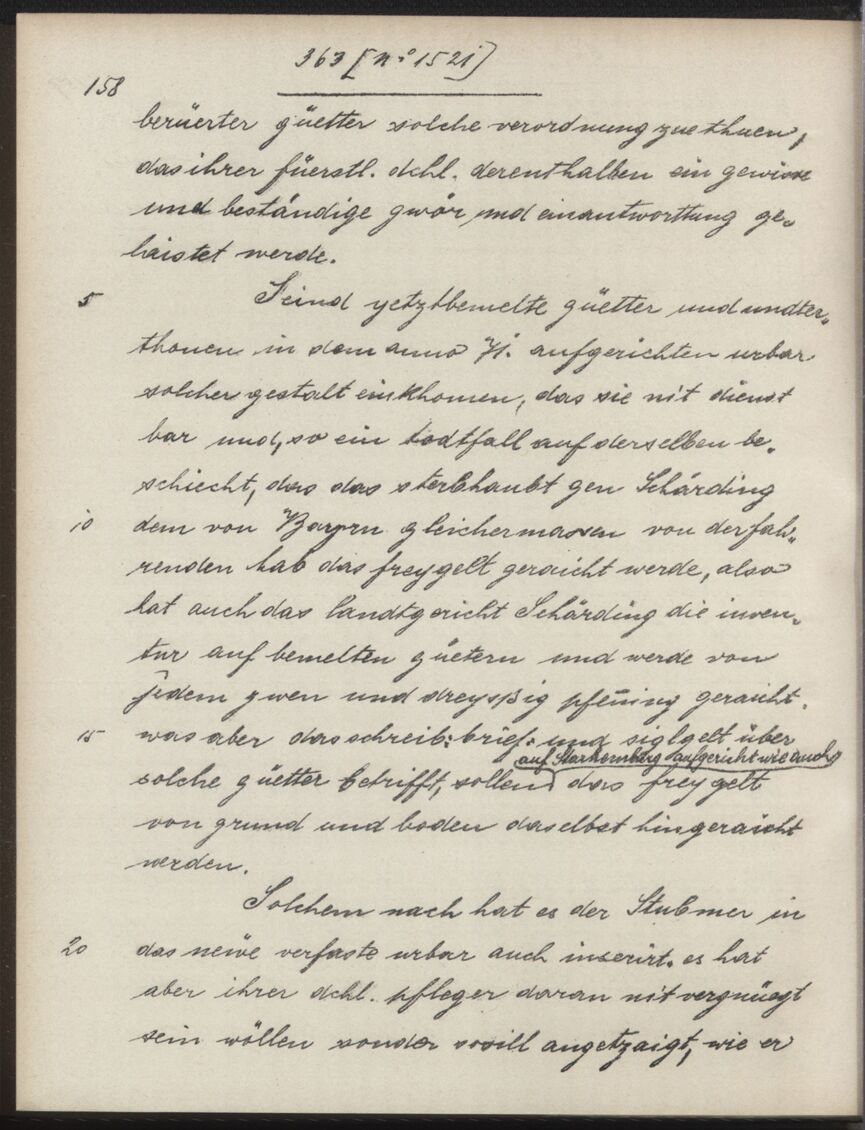 363 [n.o 1521]
158
berüerter güetter solche verordnung zue thuen,
das ihrer füerstl. dchl. derenthalben ein gewisse
und beständige gwör und einantworttung ge„
laistet werde.
5 Seind yetztbemelte güetter und undter„
thonen in dem anno 71. aufgerichten urbar
solcher gestalt einkhomen, das sie nit dienst
bar und, so ein todtfall auf derselben be„
schiecht, das das sterbhaubt gen Schärding
10 dem von Bayrn gleichermassen von der fah„
renden hab das freygelt geraicht werde, also
hat auch das landtgericht Schärding die inven„
tur auf bemelten güetern und werde von
jedem zwen und dreyssig pfening geraicht.
15 was aber das schreib: brief: und siglgelt über
auf Starhemberg aufgericht wie auch
solche güetter betrifft, sollen das freygelt
von grund und boden daselbst hingeraicht
werden.
Solchem nach hat es der Stubmer in
20 das neüe verfaste urbar auch inserirt. es hat
aber ihrer dchl. pfleger daran nit vergnüegt
sein wöllen sonder sovill angetzaigt, wie er